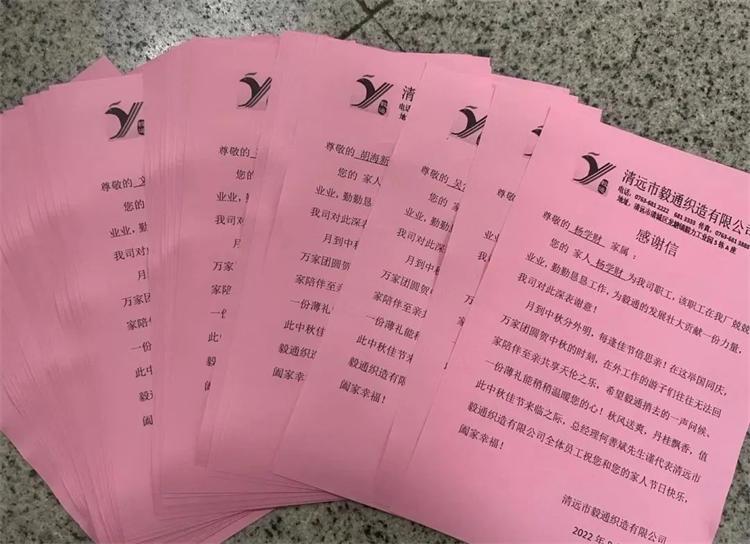 尊敬的
您的
业业，勤
我司对此
月到
万家团
家陪伴
一份
此中
毅通
阖家
尊敬的
您的
业业，勤
我司对此
月到
万家团
家陪伴
一份
此中
毅通织
阖家幸
清
电话
地
尊敬的 胡海新
您的 家人
业业，勤勤恳
我司对此深表
月到中秋
万家团圆贺
家陪伴至亲
一份薄礼能
此中秋佳节
毅通织造有
阖家幸福！
尊敬的 吴
您的 家
业业，勤勤
我司对此深
月到中秋
万家团圆贺
家陪伴至亲
一份薄礼能
此中秋佳节
毅通织造有限
阖家幸福！
尊敬的
您的
业业，勤
我司对此
月到中
万家团圆
家陪伴至
一份薄礼
此中秋佳
毅通织造
阖家幸福！
清远市毅通织造有限公司
电话：0763-681 2222 681 3333 传真：0763-681
地址：清远市清城区龙塘镇毅力工业园5栋A座
感谢信
尊敬的 杨学财 家属：
您的 家人 杨学财 为我司职工，该职工在我厂兢兢
业业，勤勤恳恳工作，为毅通的发展壮大贡献一份力量，
我司对此深表谢意！
月到中秋分外明，每逢佳节倍思亲！在这举国同庆，
万家团圆贺中秋的时刻，在外工作的游子们往往无法回
家陪伴至亲共享天伦之乐，希望毅通捎去的一声问候、
一份薄礼能稍稍温暖您的心！秋风送爽，丹桂飘香，值
此中秋佳节来临之际，总经理何善斌先生谨代表清远市
毅通织造有限公司全体员工祝您和您的家人节日快乐，
阖家幸福！
清远市毅通织造有限公司
2022 年